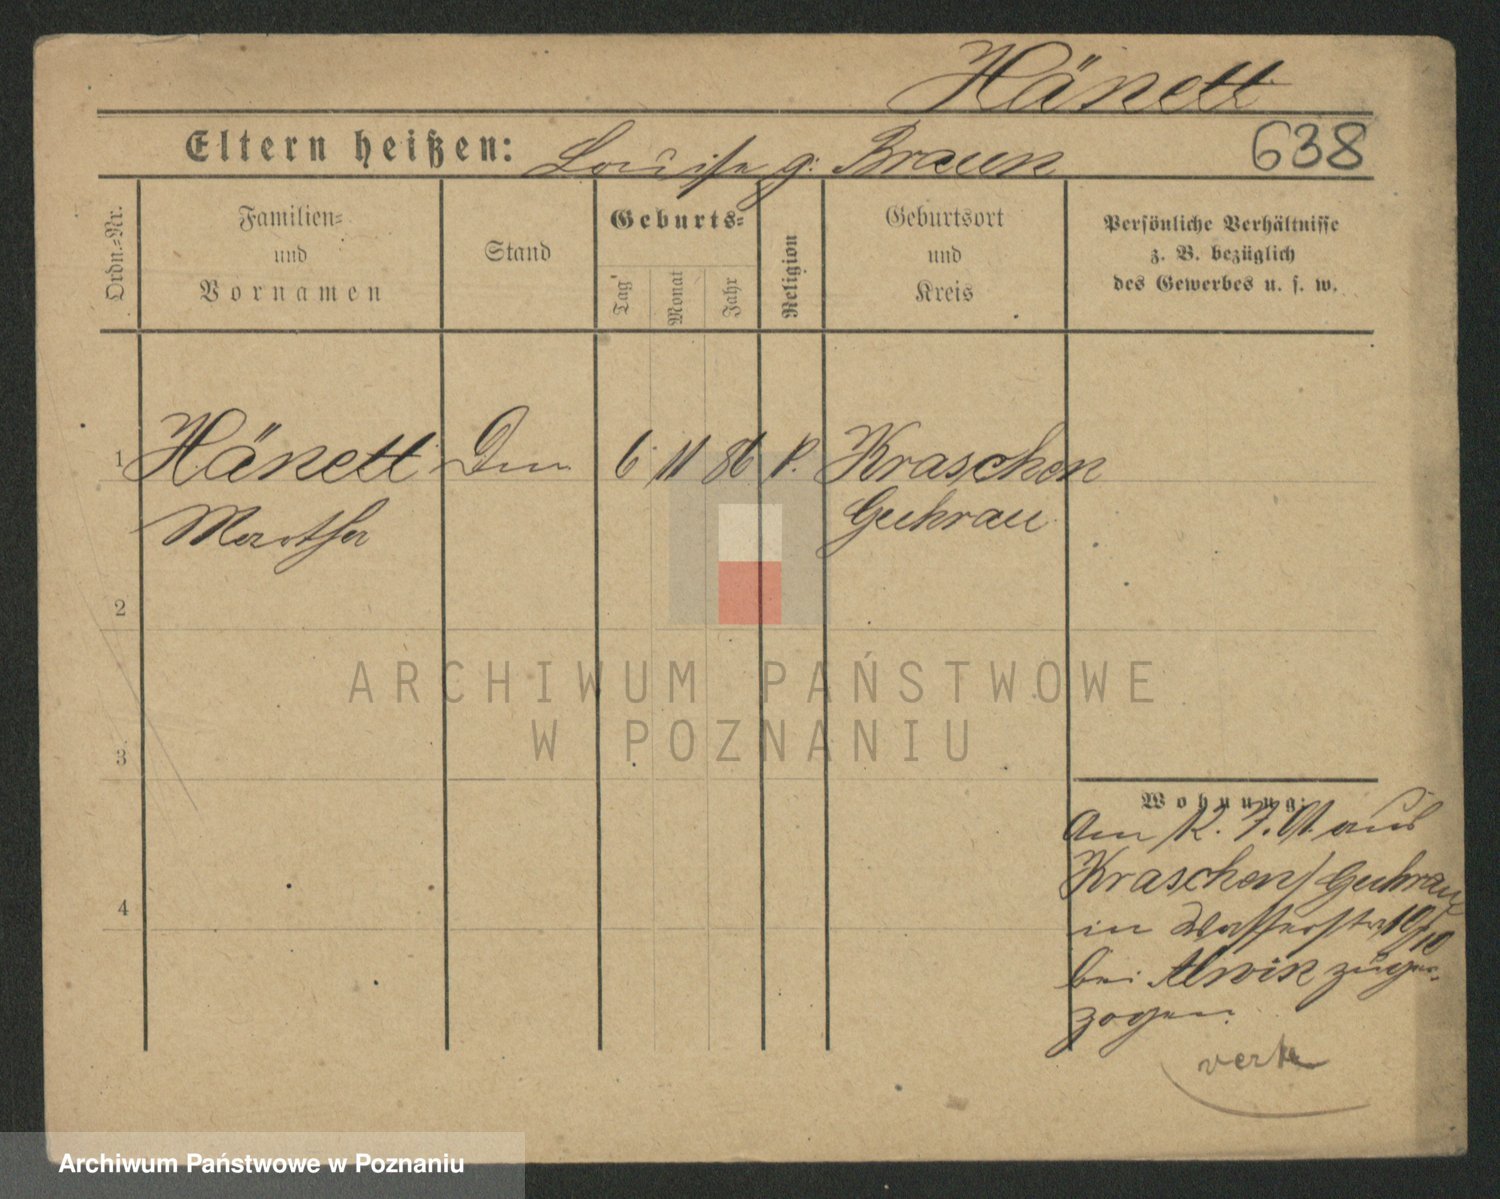 Hänett
Eltern heißen: Louise g. Braun
638
Ordn.=Nr.
Familien=
und
Vornamen
Stand
Geburts=
Tag
Monat
Jahr
Religion
Geburtsort
und
Kreis
Persönliche Verhältnisse
z. B. bezüglich
des Gewerbes u. s. w.
1 Hänett 6 11 86 Kraschen
Martha Guhrau
2
3
4
Wohnung:
Am 12. 7. 01. aus
Kraschen/Guhrau
in Wasserstr 10/10
bei zuge-
zogen.
ARCHIWUM PAŃSTWOWE
W POZNANIU
Archiwum Państwowe w Poznaniu